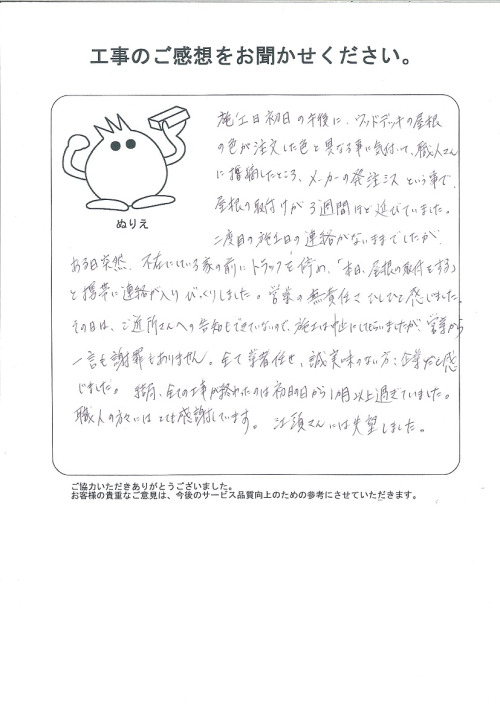 工事のご感想をお聞かせください。
施工日初日の午後に、ウッドデッキの屋根
の色が注文した色と異なる事に気付いて、職人さん
に指摘したところ、メーカーの発注ミスという事で、
屋根の取付けが3週間ほど延びていました。
ぬりえ
二度目の施工日の連絡がないままでしたが、
ある日突然、不在にしている家の前にトラックを停め、「本日、屋根の取付をする」
と携帯に連絡が入りびっくりしました。営業の無責任さひしひしと感じました。
その日は、ご近所さんへの告知もできていないので、施工は中止にしてもらいましたが、営業から
一言も謝罪もありません。全て業者任せ、誠実味のない方:企業だと感
じました。結局、全ての工事が終わったのは初日の日から1ヵ月以上過ぎていました。
職人の方々にはとても感謝しています。 さんには失望しました。
ご協力いただきありがとうございました。
お客様の貴重なご意見は、今後のサービス品質向上のための参考にさせていただきます。